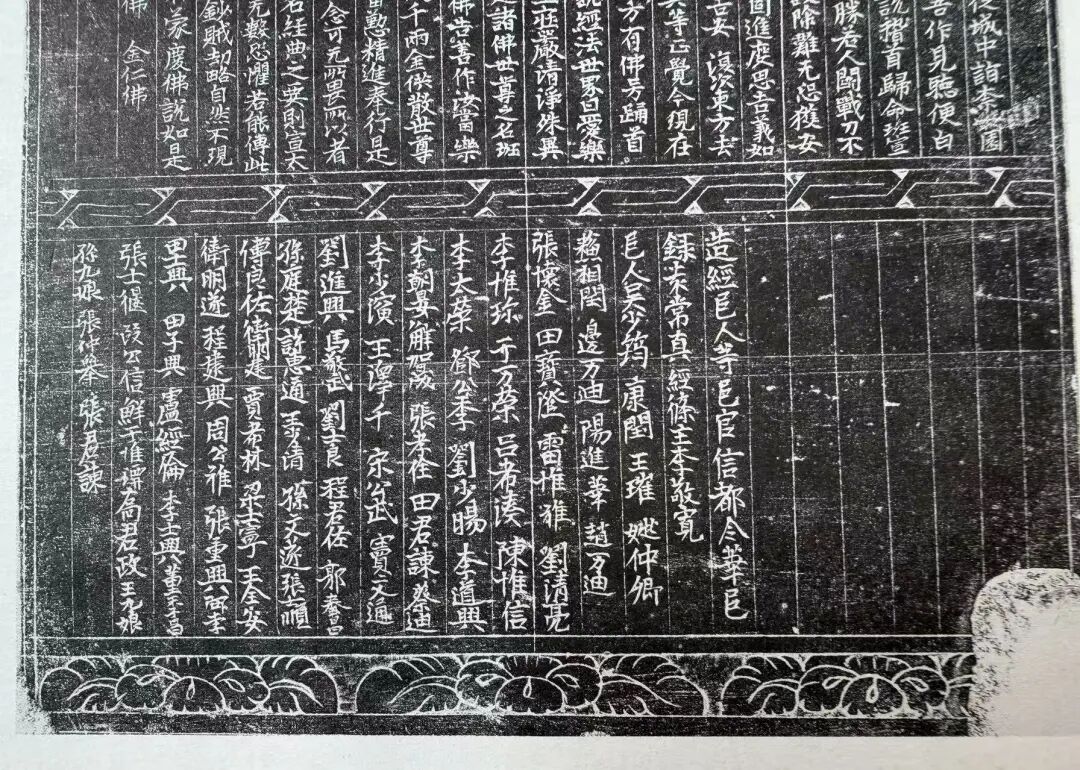 後城中詣柰園
善作見聽便白
說稽首歸命班宣
勝若人鬪戰刀不
除難无恐獲安
啚進度思吉義如
吉安 復次東方去
其等正覺今現在
方有佛号踊首
說經法世界曰愛樂
莊嚴清淨殊異
是諸佛世尊之名班
佛告善作汝當樂
千兩金供散世尊
勤慤精進奉行是
念可无所畏所以者
名經典之要則宣太
无數恐懼若能傳此
鈔賊劫略自然不現
家慶佛說如是
佛 金仁佛
造經邑人等邑官信都令華邑
録宋常真經條主李敬寬
邑人吳少筠 康閏 王璀 姚仲卿
蘓相閏 邊万迪 陽進華 趙万迪
張懷金 田寶澄 雷惟雅 劉清亮
李惟珎 亓万榮 呂希湊 陳惟信
李太榮 鄧公李 劉少暘 李道興
李朝晏 解賀𡻕 張孝佺 田君諫 蔡迪
李少演 王澤千 宋公武 竇文通
劉進興 馬敬武 劉士良 程君佐 郭奉昌
孫庭楚 許惠通 王清 孫文遂 張頑
傅良佐 衛朝建 賈希林 梁士寧 王令安
衛明遂 程建興 周公雅 張重興 李
田士興 田子興 盧經倫 李士興 董士昌
張士偃 段公信 鮮于惟摽 高君政 王九娘
孫九娘 張仲舉 張君諫